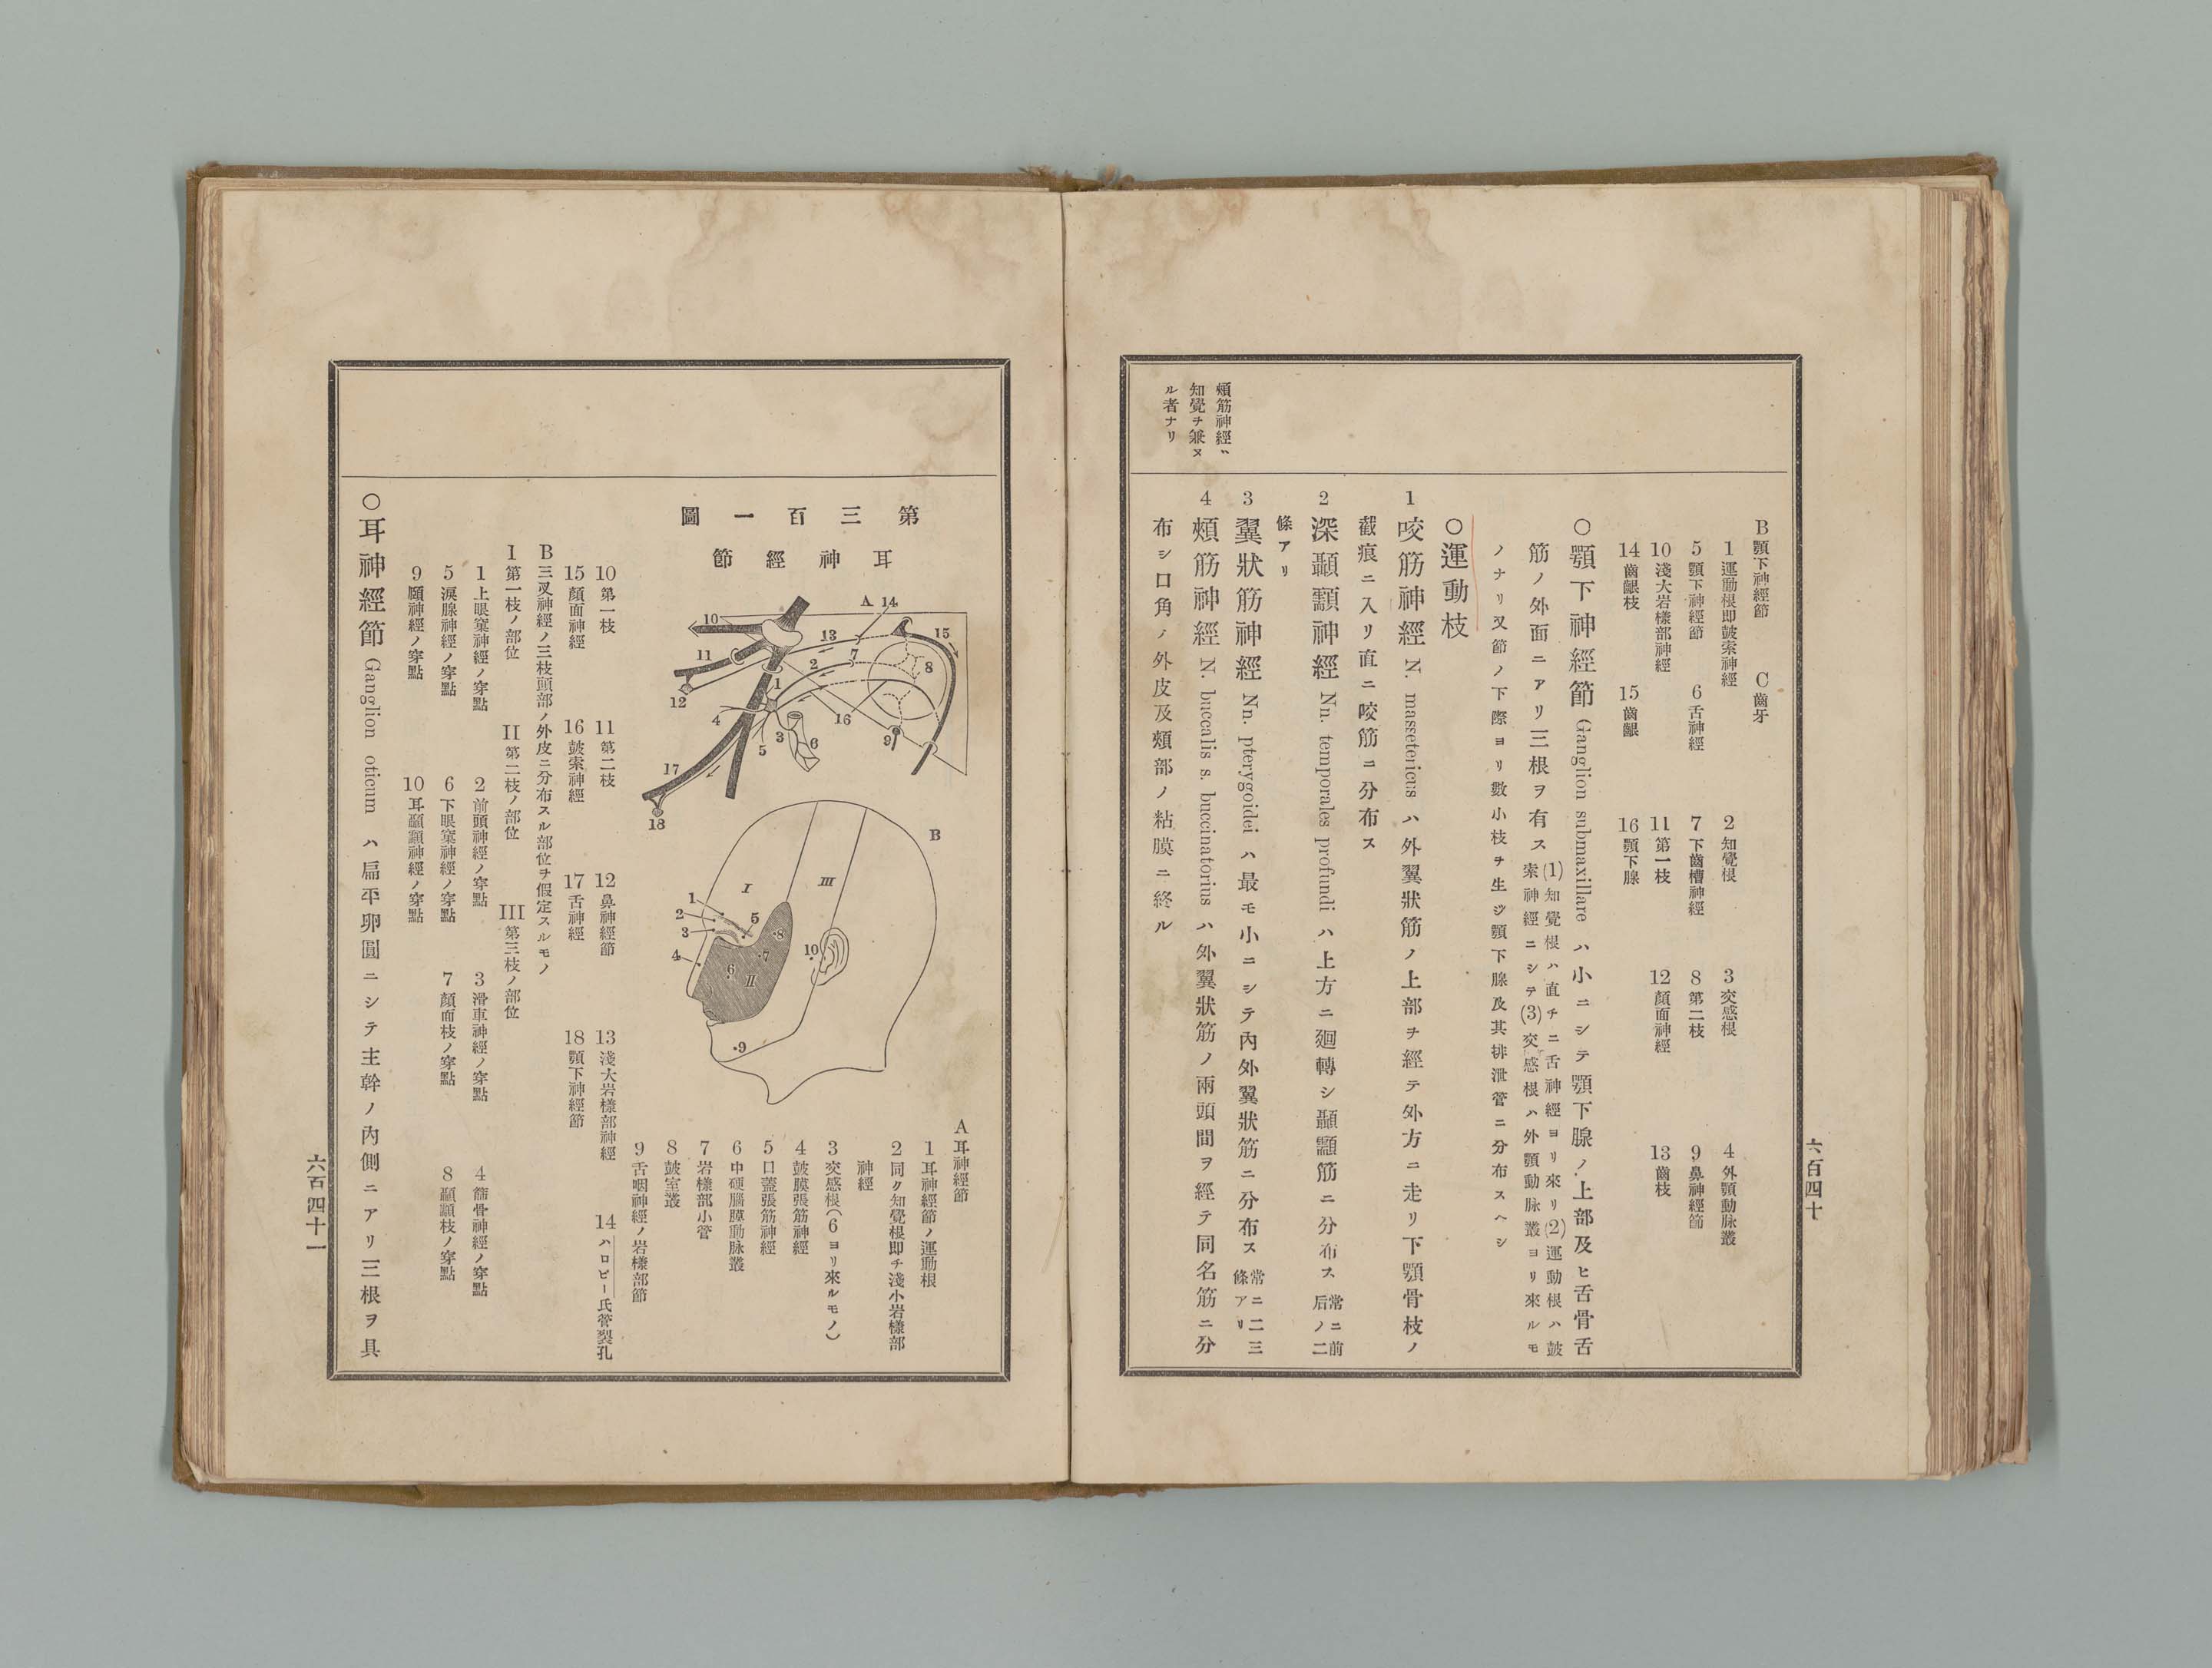 六百四十
B 顎下神經節　C 齒牙
1 運動根即鼓索神經　2 知覺根　3 交感根　4 外顎動脉叢
5 顎下神經節　6 舌神經　7 下齒槽神經　8 第二枝　9 鼻神經節
10 淺大岩樣部神經　11 第一枝　12 顏面神經　13 齒枝
14 齒齦枝　15 齒齦　16 顎下腺
○顎下神經節 Ganglion submaxillare ハ小ニシテ顎下腺ノ上部及ヒ舌骨舌
筋ノ外面ニアリ三根ヲ有ス (1)知覺根ハ直チニ舌神經ヨリ來リ(2)運動根ハ鼓
索神經ニシテ(3)交感根ハ外顎動脉叢ヨリ來ルモ
ノナリ又節ノ下際ヨリ數小枝ヲ生シ顎下腺及其排泄管ニ分布スヘシ
○運動枝
1 咬筋神經 N. massetericus ハ外翼狀筋ノ上部ヲ經テ外方ニ走リ下顎骨枝ノ
截痕ニ入リ直ニ咬筋ニ分布ス
2 深顳顬神經 Nn. temporales profundi ハ上方ニ廻轉シ顳顬筋ニ分布ス 常ニ前
后ノ二
條アリ
3 翼狀筋神經 Nn. pterygoidei ハ最モ小ニシテ內外翼狀筋ニ分布ス 常ニ二三
條アリ
4 頰筋神經 N. buccalis s. buccinatorius ハ外翼狀筋ノ兩頭間ヲ經テ同名筋ニ分
布シ口角ノ外皮及頰部ノ粘膜ニ終ル
頰筋神經ハ
知覺ヲ兼ヌ
ル者ナリ
第三百一圖
耳神經節
A
14
10
13
15
11
7
2
8
1
12
4
16
3
9
5
6
17
18
B
I
III
1
2
5
3
8
4
10
7
6
II
9
A 耳神經節
1 耳神經節ノ運動根
2 同ク知覺根即チ淺小岩樣部
神經
3 交感根(6ヨリ來ルモノ)
4 鼓膜張筋神經
5 口蓋張筋神經
6 中硬腦膜動脉叢
7 岩樣部小管
8 鼓室叢
9 舌咽神經ノ岩樣部節
10 第一枝　11 第二枝　12 鼻神經節　13 淺大岩樣部神經　14 ハロピー氏管裂孔
15 顏面神經　16 鼓索神經　17 舌神經　18 顎下神經節
B 三叉神經ノ三枝頭部ノ外皮ニ分布スル部位ヲ假定スルモノ
I 第一枝ノ部位　II 第二枝ノ部位　III 第三枝ノ部位
1 上眼窠神經ノ穿點　2 前頭神經ノ穿點　3 滑車神經ノ穿點　4 篩骨神經ノ穿點
5 淚腺神經ノ穿點　6 下眼窠神經ノ穿點　7 顏面枝ノ穿點　8 顳顬枝ノ穿點
9 頤神經ノ穿點　10 耳顳顬神經ノ穿點
○耳神經節 Ganglion oticum ハ扁平卵圓ニシテ主幹ノ內側ニアリ三根ヲ具
六百四十一